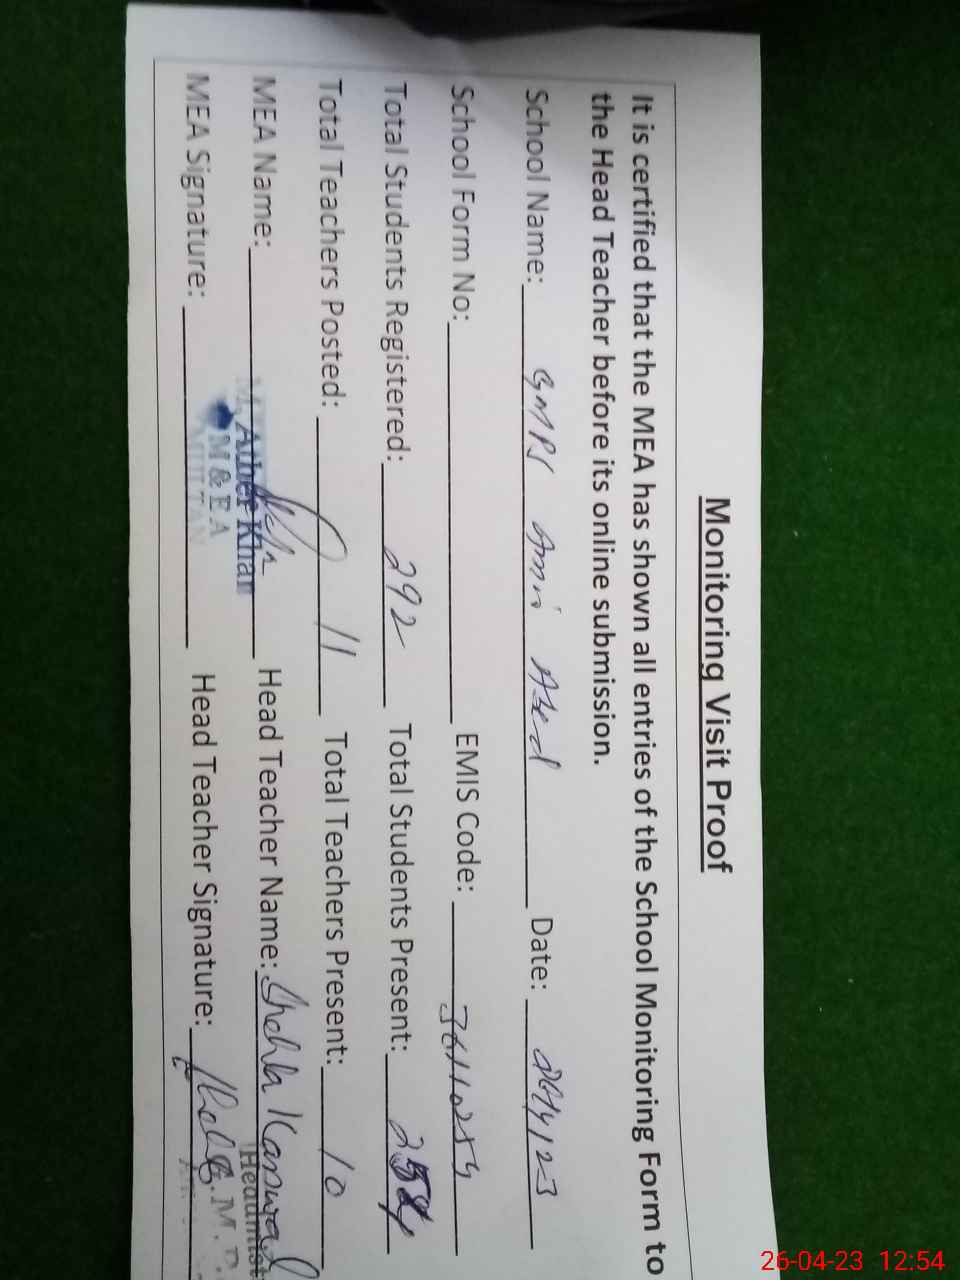 Monitoring Visit Proof
It is certified that the MEA has shown all entries of the School Monitoring Form to
the Head Teacher before its online submission.
School Name: GMPS Amri Abad Date:
School Form No: EMIS Code:
Total Students Registered: 292 Total Students Present:
Total Teachers Posted: 11 Total Teachers Present: 10
MEA Name: M. Ather Khan Head Teacher Name: Shehla Kanwal
M & E A
MULTAN
MEA Signature: Head Teacher Signature:
26-04-23 12:54